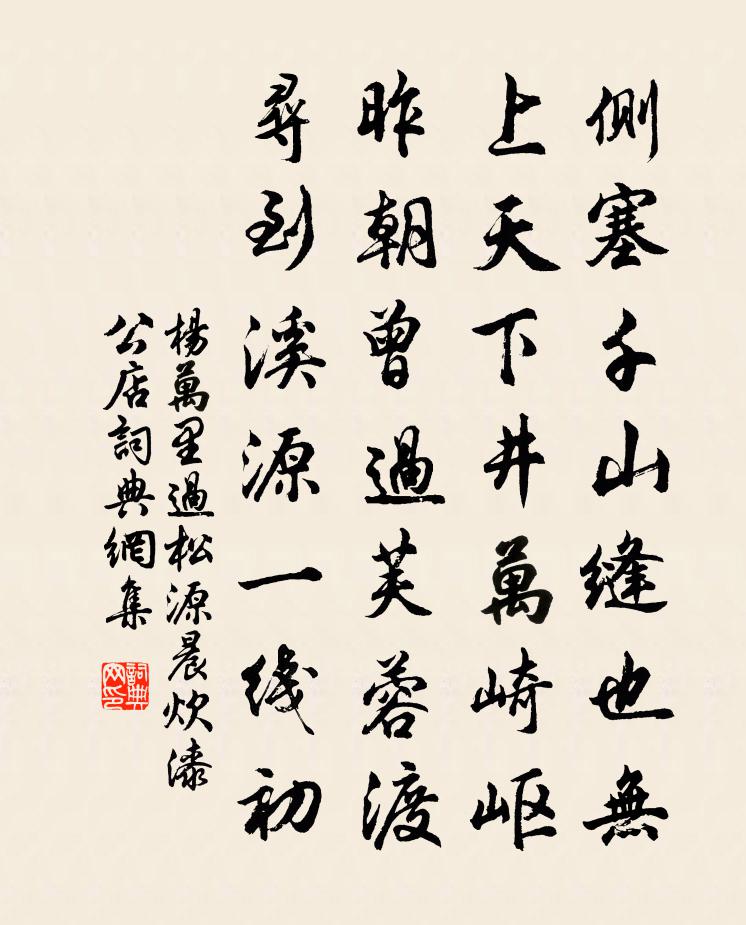 側塞千山縫也無
上天下井萬崎岖
昨朝曾過芙蓉渡
尋到溪源一线初
楊萬里過松源晨炊漆
公店詞典網集
詞典网印